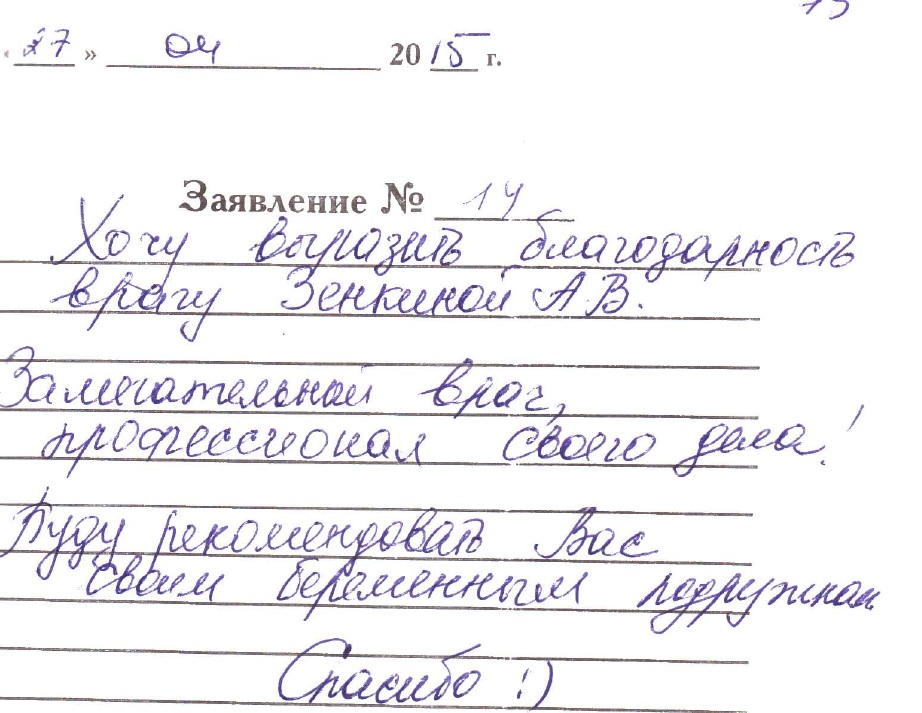 « 27 » 04 2015 г.
Заявление № 14
Хочу выразить благодарность
врачу Зенкиной А.В.
Замечательный врач,
профессионал своего дела!
Буду рекомендовать Вас
своим беременным подружкам
Спасибо :)